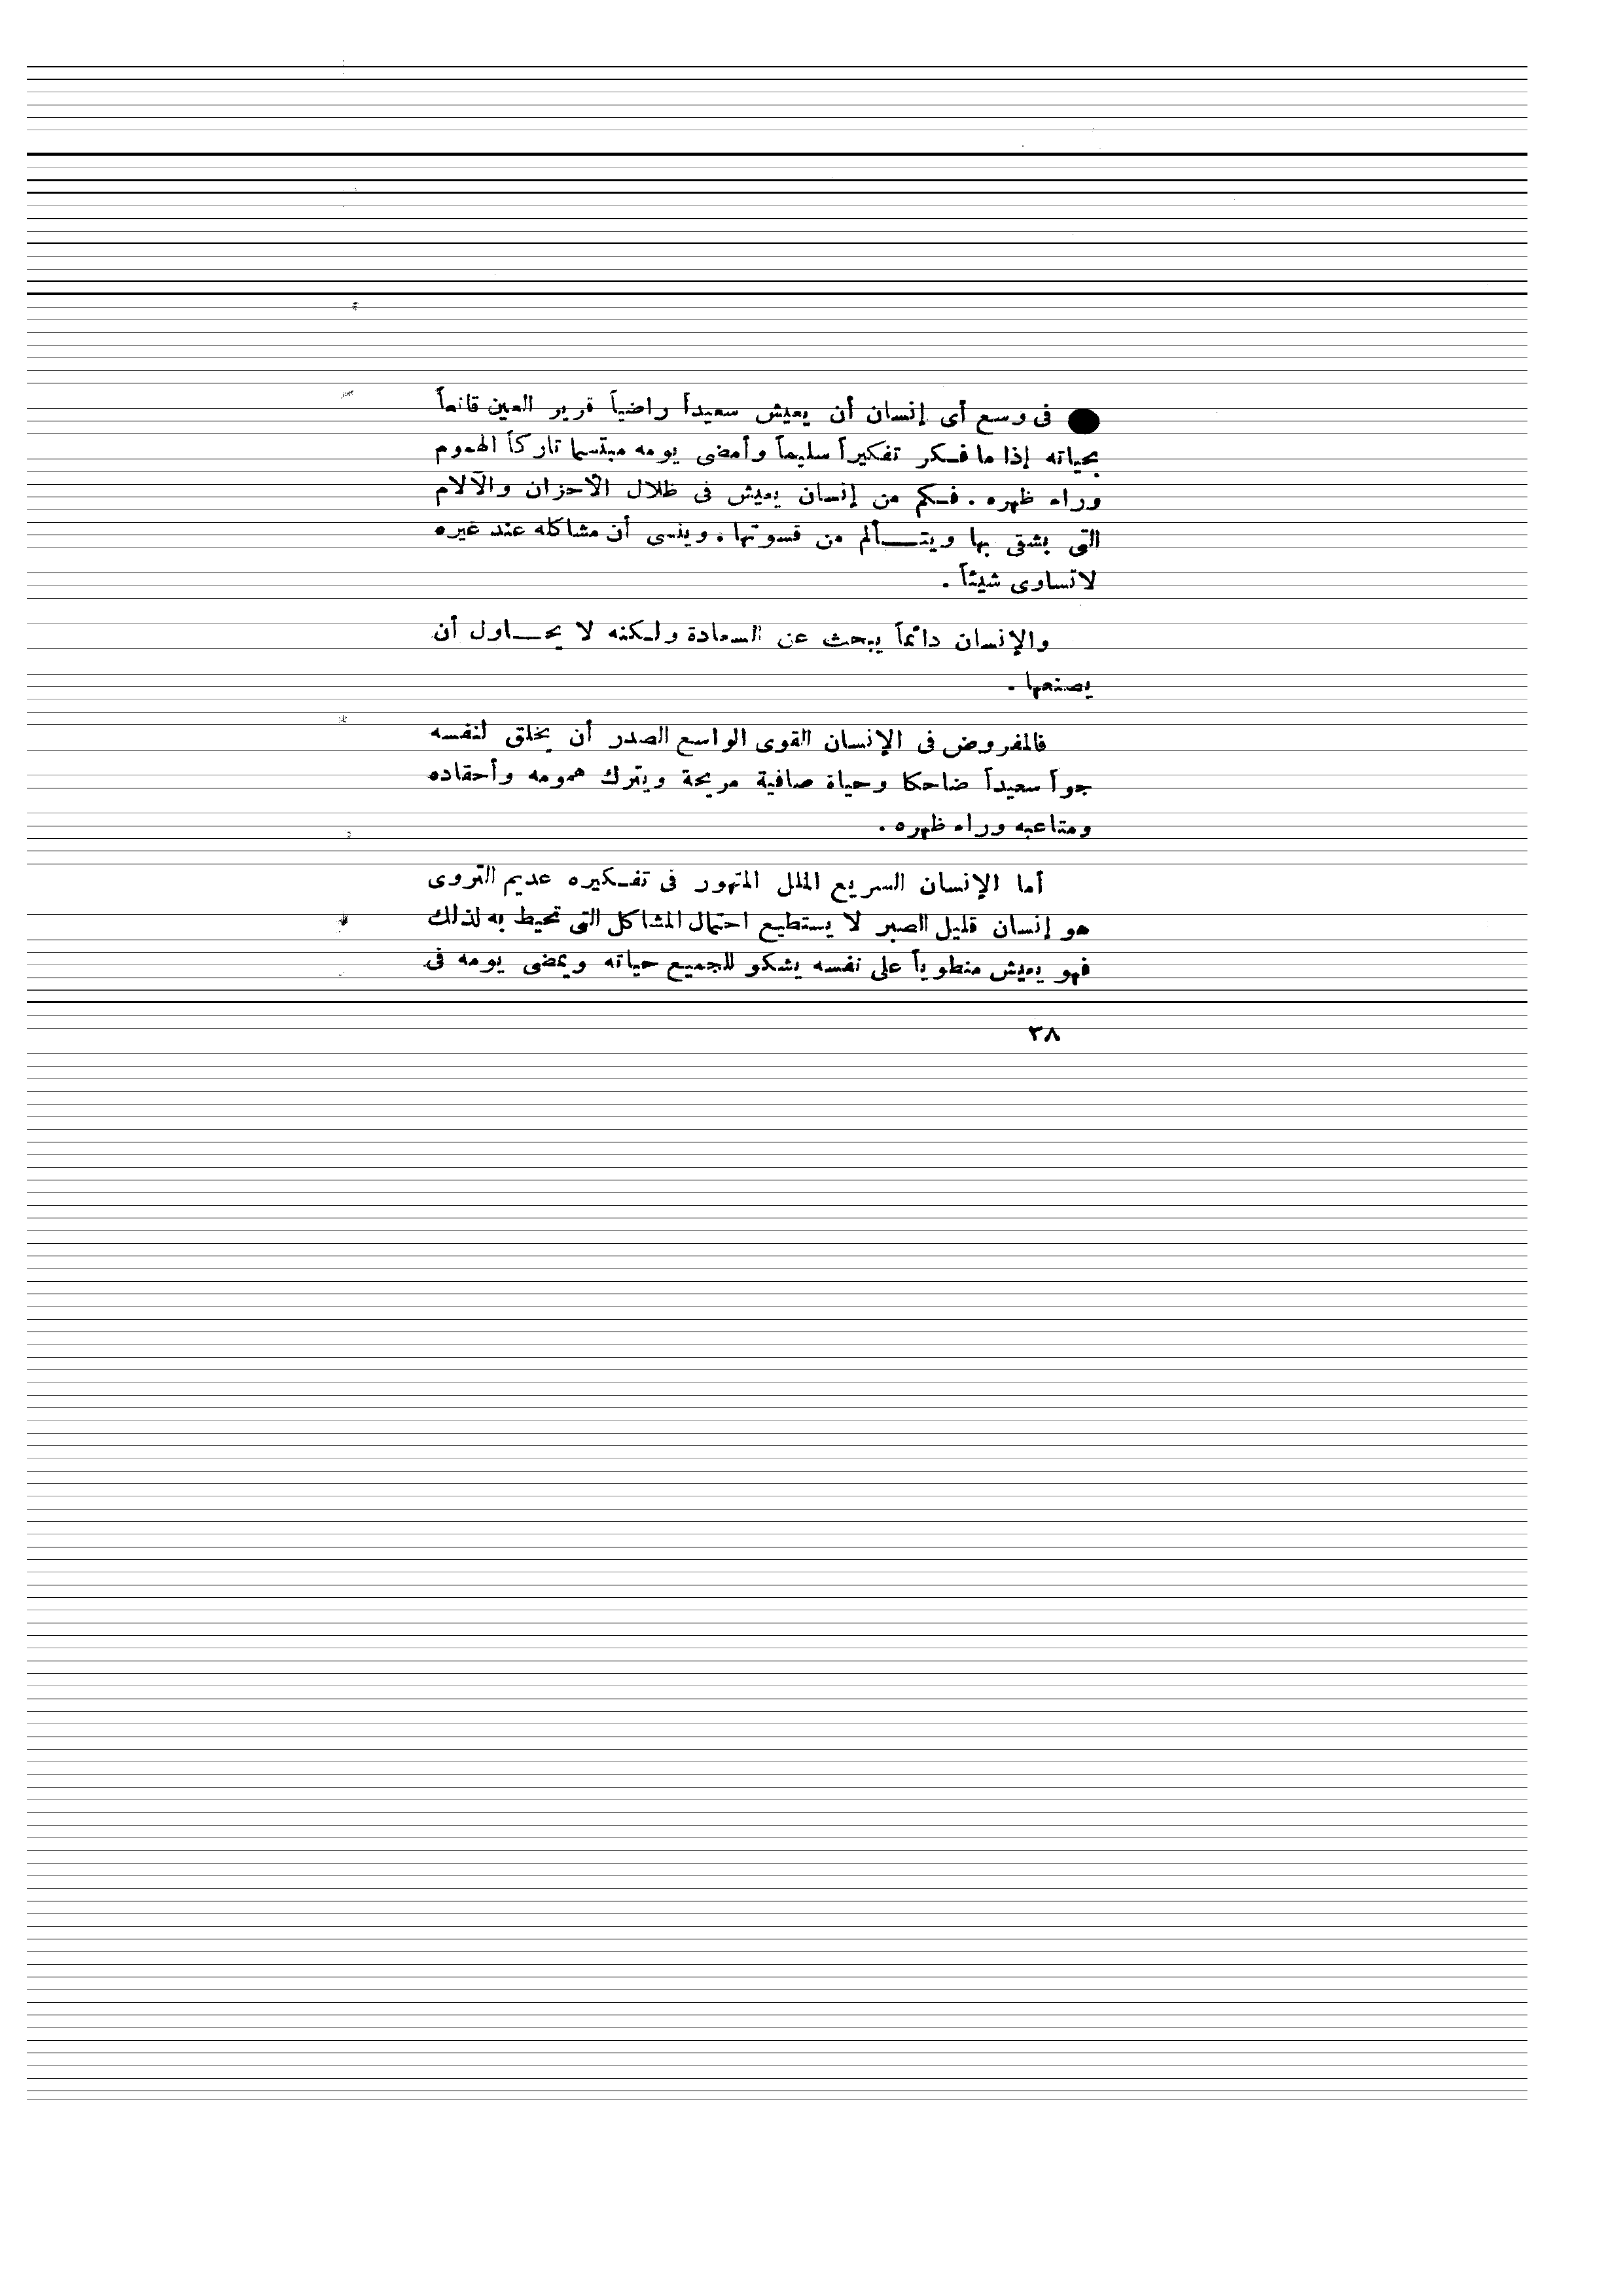 ● فى وسع أى إنسان أن يعيش سعيداً راضياً قرير العين قانعاً
بحياته إذا ما فكر تفكيراً سليماً وأمضى يومه مبتسما تاركاً الهموم
وراء ظهره . فكم من إنسان يعيش فى ظلال الأحزان والآلام
التى يشقى بها ويتألم من قسوتها ، وينسى أن مشاكله عند غيره
لاتساوى شيئاً .
والإنسان دائماً يبحث عن السعادة ولكنه لا يحاول أن
يصنعها .
فالمفروض فى الإنسان القوى الواسع الصدر أن يخلق لنفسه
جواً سعيداً ضاحكا وحياة صافية مريحة ويترك همومه وأحقاده
ومتاعبه وراء ظهره .
أما الإنسان السريع الملل المتهور فى تفكيره عديم التروى
هو إنسان قليل الصبر لا يستطيع احتمال المشاكل التى تحيط به لذلك
فهو يعيش منطوياً على نفسه يشكو للجميع حياته ويمضى يومه فى
٣٨